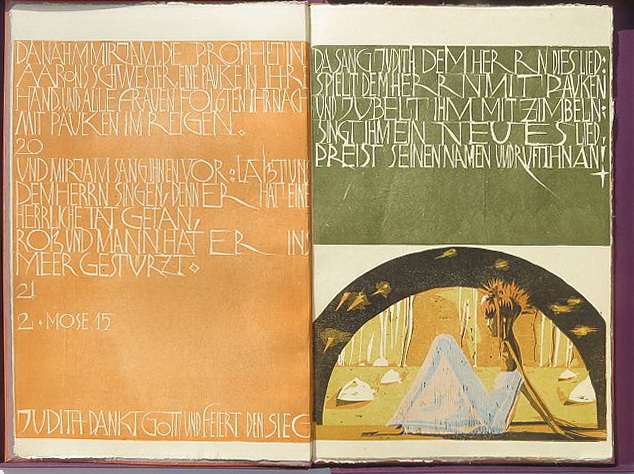 DA NAHM MIRJAM, DIE PROPHETIN
AARONS SCHWESTER, EINE PAUKE IN IHRE
HAND, UND ALLE FRAUEN FOLGTEN IHR NACH
MIT PAUKEN IM REIGEN.
20
UND MIRJAM SANG IHNEN VOR: LAẞT UNS
DEM HERRN SINGEN, DENN ER HAT EINE
HERRLICHE TAT GETAN,
ROẞ UND MANN HAT ER INS
MEER GESTÜRZT.
21
2. MOSE 15
JUDITH DANKT GOTT UND FEIERT DEN SIEG
DA SANG JUDITH DEM HERRN DIES LIED:
SPIELT DEM HERRN MIT PAUKEN
UND JUBELT IHM MIT ZIMBELN:
SINGT IHM EIN NEUES LIED,
PREIST SEINEN NAMEN UND RUFT IHN AN!